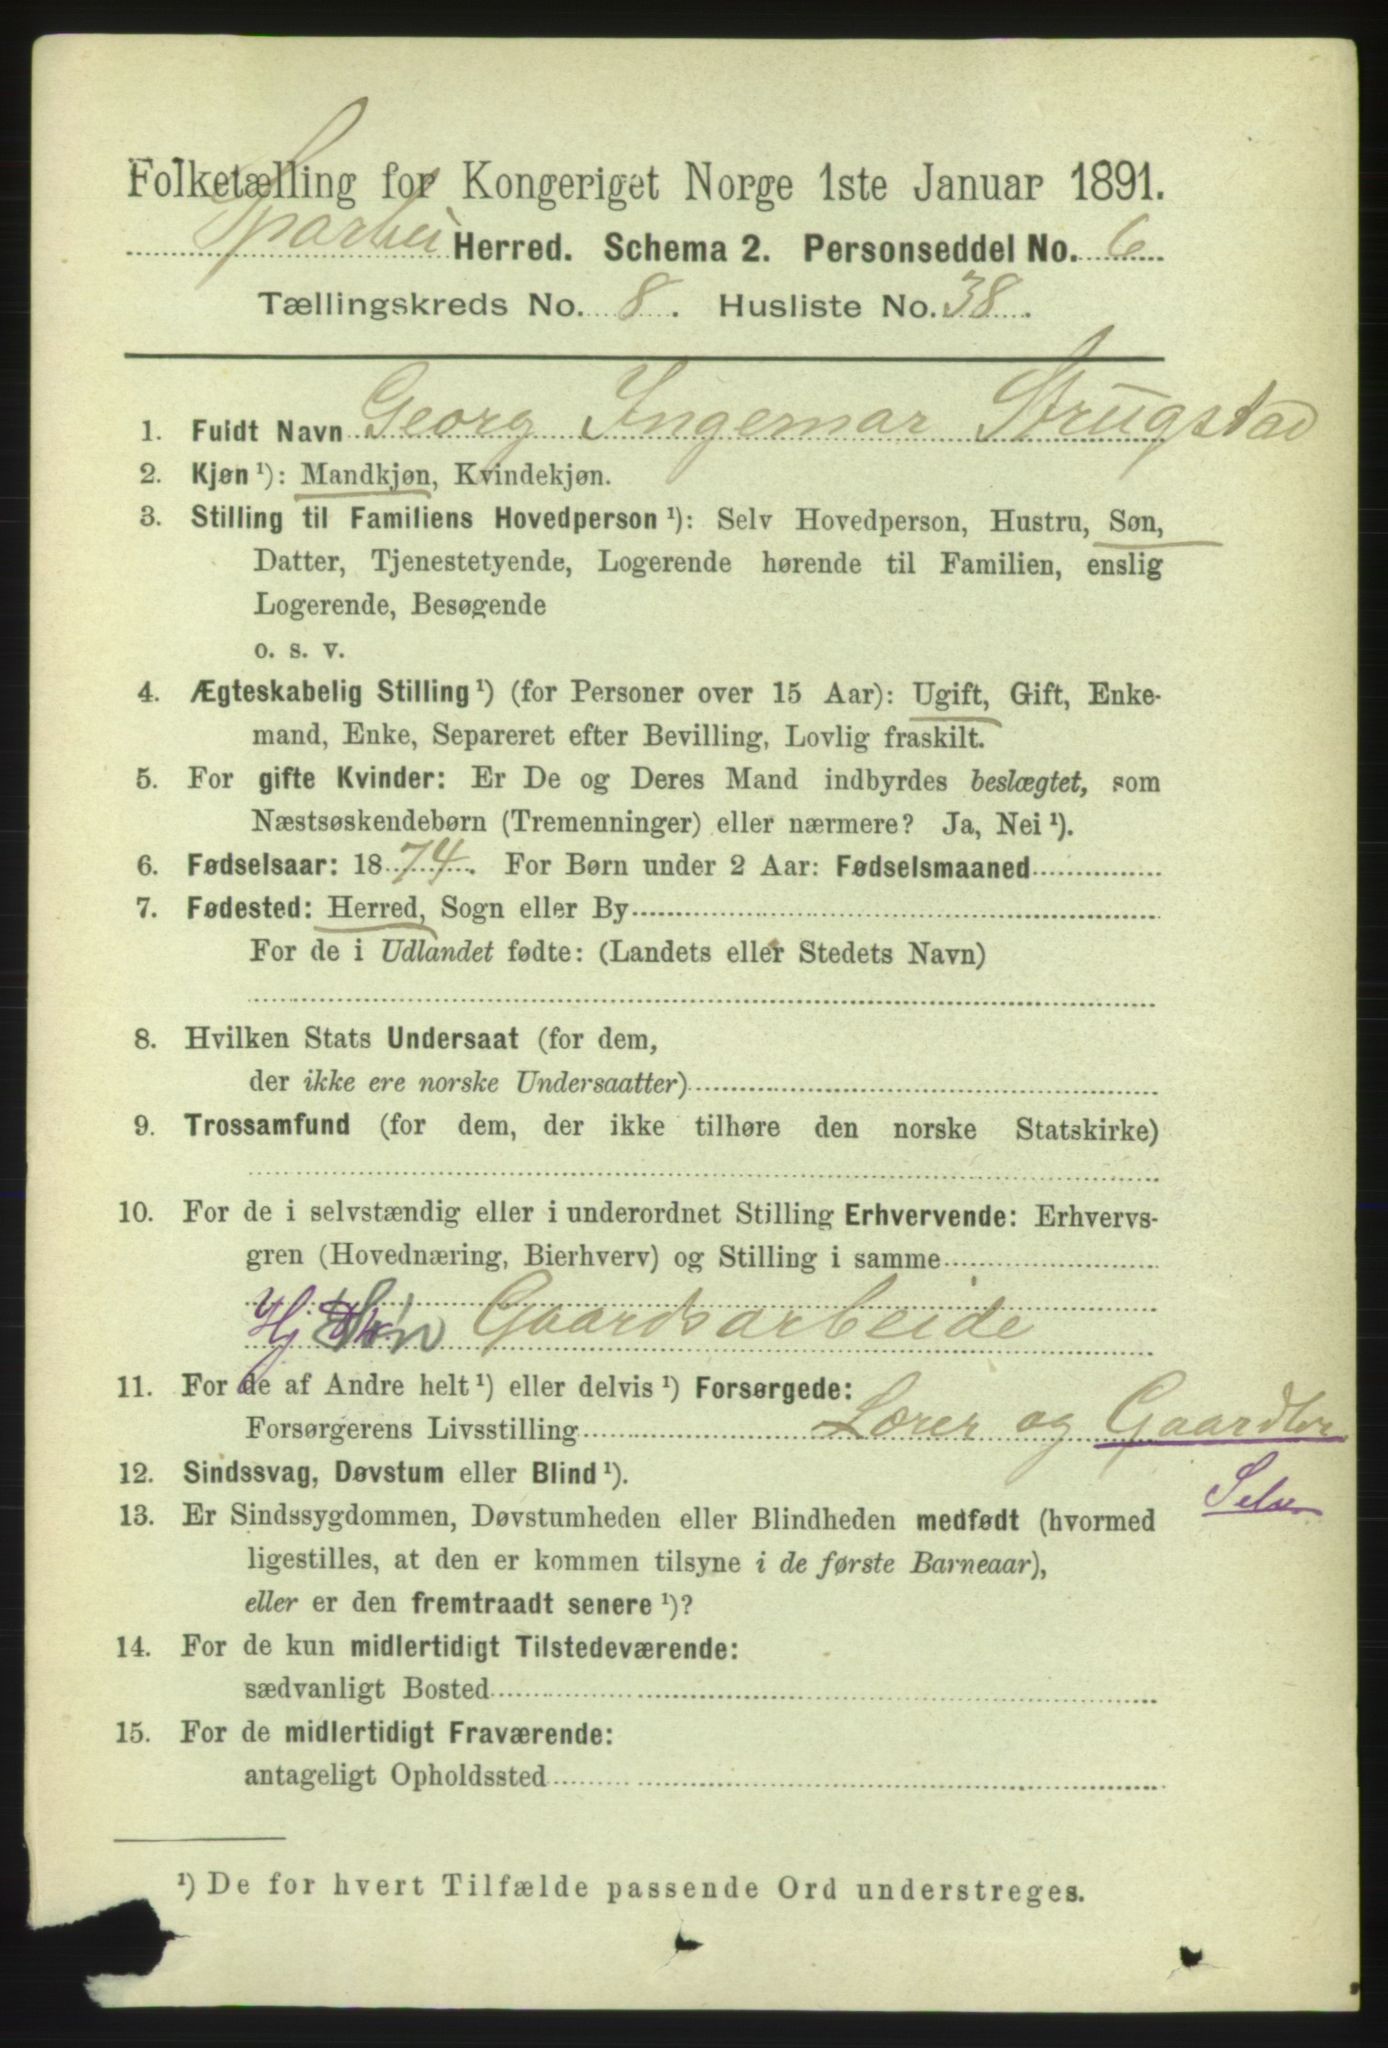 Folketælling for Kongeriget Norge 1ste Januar 1891.
Sparbu Herred. Schema 2. Personseddel No. 6
Tællingskreds No. 8. Husliste No. 38.
1. Fuldt Navn Georg Ingemar Strugstad
2. Kjøn ¹): Mandkjøn, Kvindekjøn.
3. Stilling til Familiens Hovedperson ¹): Selv Hovedperson, Hustru, Søn,
Datter, Tjenestetyende, Logerende hørende til Familien, enslig
Logerende, Besøgende
o. s. v.
4. Ægteskabelig Stilling ¹) (for Personer over 15 Aar): Ugift, Gift, Enke-
mand, Enke, Separeret efter Bevilling, Lovlig fraskilt.
5. For gifte Kvinder: Er De og Deres Mand indbyrdes beslægtet, som
Næstsøskendebørn (Tremenninger) eller nærmere? Ja, Nei ¹).
6. Fødselsaar: 1874. For Børn under 2 Aar: Fødselsmaaned
7. Fødested: Herred, Sogn eller By
For de i Udlandet fødte: (Landets eller Stedets Navn)
8. Hvilken Stats Undersaat (for dem,
der ikke ere norske Undersaatter)
9. Trossamfund (for dem, der ikke tilhøre den norske Statskirke)
10. For de i selvstændig eller i underordnet Stilling Erhvervende: Erhvervs-
gren (Hovednæring, Bierhverv) og Stilling i samme
Hj Søn Gaardsarbeide
11. For de af Andre helt ¹) eller delvis ¹) Forsørgede:
Forsørgerens Livsstilling Lærer og Gaardbr
12. Sindssvag, Døvstum eller Blind ¹).
Selv
13. Er Sindssygdommen, Døvstumheden eller Blindheden medfødt (hvormed
ligestilles, at den er kommen tilsyne i de første Barneaar),
eller er den fremtraadt senere ¹)?
14. For de kun midlertidigt Tilstedeværende:
sædvanligt Bosted
15. For de midlertidigt Fraværende:
antageligt Opholdssted
¹) De for hvert Tilfælde passende Ord understreges.